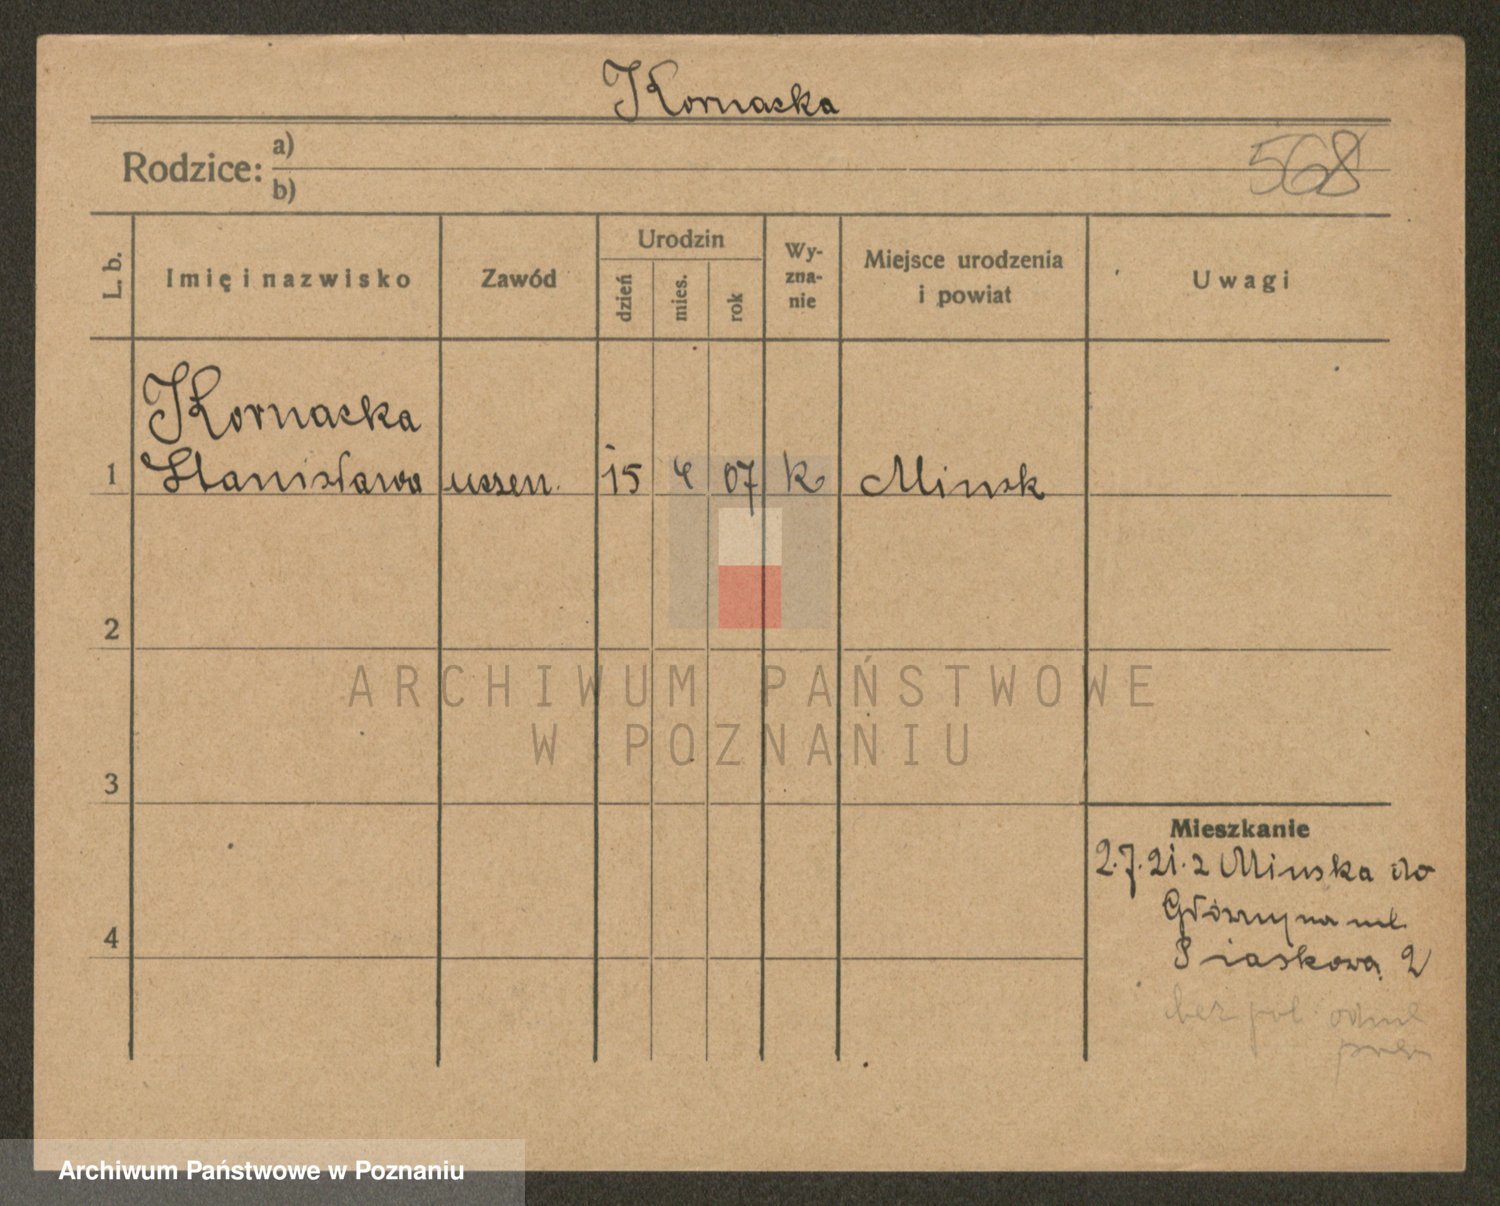 Kornacka
Rodzice: a)
b)
568
L. b.
Imię i nazwisko
Zawód
Urodzin
dzień
mies.
rok
Wy-
zna-
nie
Miejsce urodzenia
i powiat
Uwagi
Kornacka
1 Stanisława uczen. 15 4 07 k Minsk
2
3
4
Mieszkanie
2.7.21. z Minska do
Główny na ul.
Piaskowa 2
bez pol.
ARCHIWUM PAŃSTWOWE
W POZNANIU
Archiwum Państwowe w Poznaniu